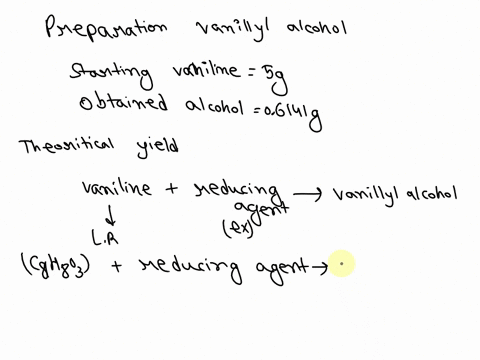 Preparation vanillyl alcohol
Starting vaniline = 5g
Obtained alcohol = 0.6141g
Theoritical yield
vaniline + reducing agent → vanillyl alcohol
↓ (ex)
L.R
(C8H8O3) + reducing agent →